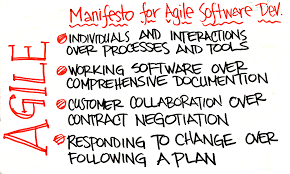 Manifesto for Agile Software Dev.
AGILE
INDIVIDUALS AND INTERACTIONS
OVER PROCESSES AND TOOLS
WORKING SOFTWARE OVER
COMPREHENSIVE DOCUMENTION
CUSTOMER COLLABORATION OVER
CONTRACT NEGOTIATION
RESPONDING TO CHANGE OVER
FOLLOWING A PLAN